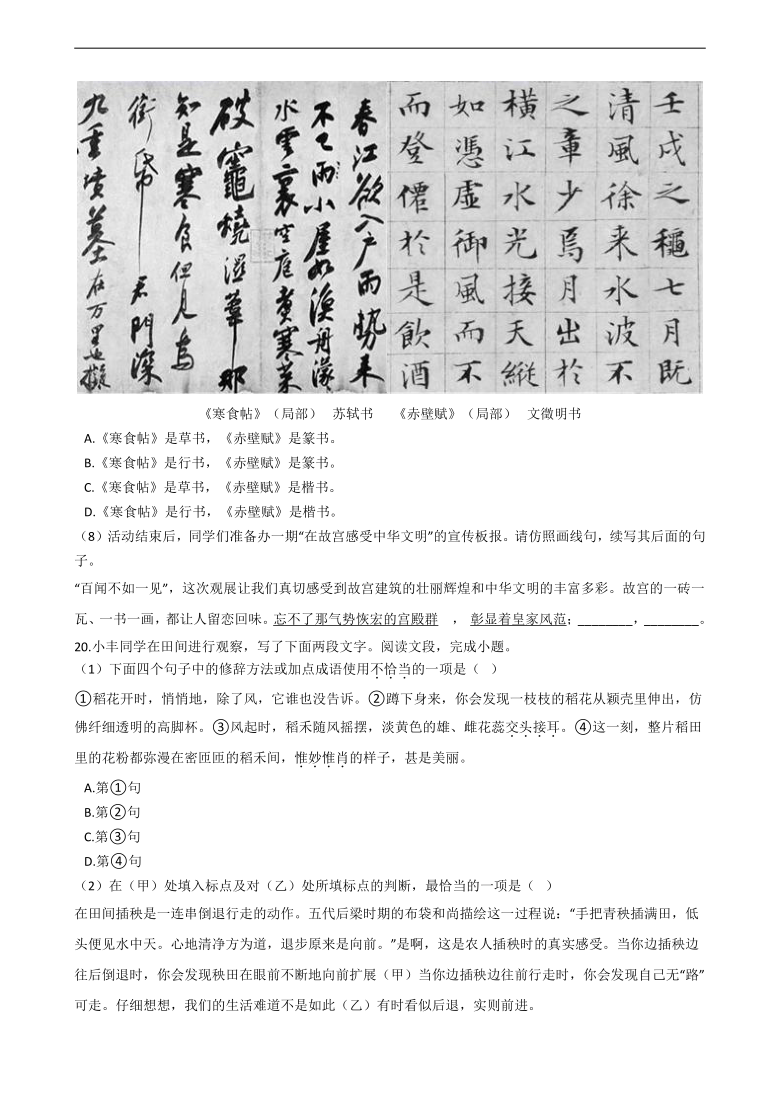 春江欲入户雨势来
不已雨小屋如渔舟濛
水云里空庖煮寒菜
破竈烧湿苇那
知是寒食但见乌
衔帋君门深
九重坟墓在万里也拟
壬戌之秋七月既
清風徐来水波不
之章少焉月出於
横江水光接天縱
如憑虚御風而不
而登僊於是飲酒
《寒食帖》（局部） 苏轼书 《赤壁赋》（局部） 文徵明书
A.《寒食帖》是草书，《赤壁赋》是篆书。
B.《寒食帖》是行书，《赤壁赋》是篆书。
C.《寒食帖》是草书，《赤壁赋》是楷书。
D.《寒食帖》是行书，《赤壁赋》是楷书。
（8）活动结束后，同学们准备办一期“在故宫感受中华文明”的宣传板报。请仿照画线句，续写其后面的句
子。
“百闻不如一见”，这次观展让我们真切感受到故宫建筑的壮丽辉煌和中华文明的丰富多彩。故宫的一砖一
瓦、一书一画，都让人留恋回味。忘不了那气势恢宏的宫殿群 ，彰显着皇家风范；________，________。
20.小丰同学在田间进行观察，写了下面两段文字。阅读文段，完成小题。
（1）下面四个句子中的修辞方法或加点成语使用不恰当的一项是（ ）
①稻花开时，悄悄地，除了风，它谁也没告诉。②蹲下身来，你会发现一枝枝的稻花从颖壳里伸出，仿
佛纤细透明的高脚杯。③风起时，稻禾随风摇摆，淡黄色的雄、雌花蕊交头接耳。④这一刻，整片稻田
里的花粉都弥漫在密匝匝的稻禾间，惟妙惟肖的样子，甚是美丽。
A.第①句
B.第②句
C.第③句
D.第④句
（2）在（甲）处填入标点及对（乙）处所填标点的判断，最恰当的一项是（ ）
在田间插秧是一连串倒退行走的动作。五代后梁时期的布袋和尚描绘这一过程说：“手把青秧插满田，低
头便见水中天。心地清净方为道，退步原来是向前。”是啊，这是农人插秧时的真实感受。当你边插秧边
往后倒退时，你会发现秧田在眼前不断地向前扩展（甲）当你边插秧边往前行走时，你会发现自己无“路”
可走。仔细想想，我们的生活难道不是如此（乙）有时看似后退，实则前进。